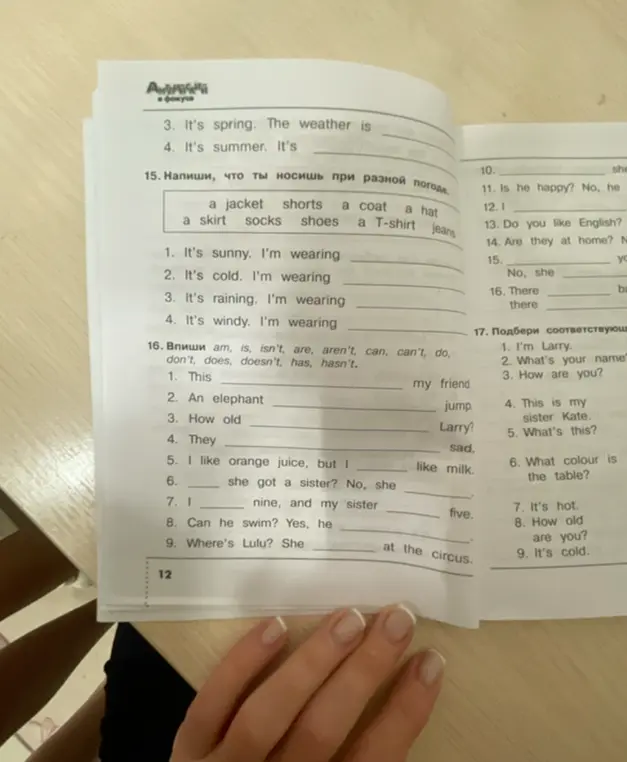 в фокусе
3. It's spring. The weather is
4. It's summer. It's
15. Напиши, что ты носишь при разной погоде.
a jacket shorts a coat a hat
a skirt socks shoes a T-shirt jeans
1. It's sunny. I'm wearing
2. It's cold. I'm wearing
3. It's raining. I'm wearing
4. It's windy. I'm wearing
16. Впиши am, is, isn't, are, aren't, can, can't, do,
don't, does, doesn't, has, hasn't.
1. This my friend
2. An elephant jump.
3. How old Larry?
4. They sad.
5. I like orange juice, but I like milk.
6. she got a sister? No, she .
7. I nine, and my sister five.
8. Can he swim? Yes, he .
9. Where's Lulu? She at the circus.
12
10. she
11. Is he happy? No, he
12. I
13. Do you like English?
14. Are they at home? N
15. yo
No, she
16. There b
there
17. Подбери соответствующ
1. I'm Larry.
2. What's your name
3. How are you?
4. This is my
sister Kate.
5. What's this?
6. What colour is
the table?
7. It's hot.
8. How old
are you?
9. It's cold.